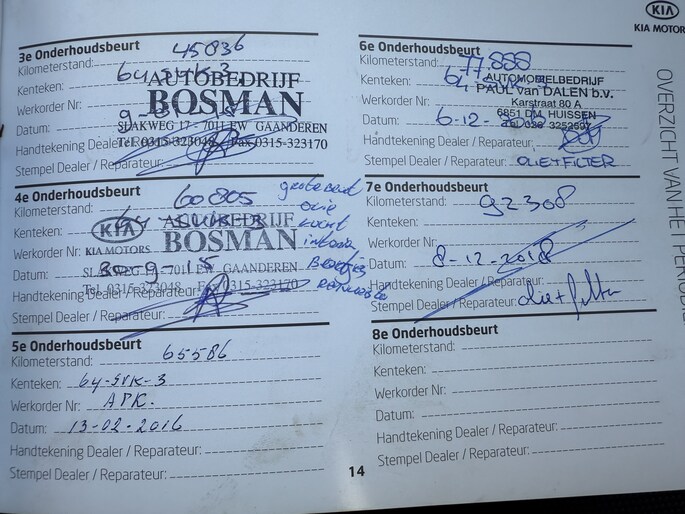 KIA
KIA MOTOR
OVERZICHT VAN HET PERIODIE
3e Onderhoudsbeurt
Kilometerstand: 45036
Kenteken: 64-SVK-3
Werkorder Nr:
Datum:
Handtekening Dealer / Reparateur:
Stempel Dealer / Reparateur:
AUTOBEDRIJF
BOSMAN
SLAKWEG 17 - 7011 EW GAANDEREN
Tel. 0315-323048 Fax 0315-323170
4e Onderhoudsbeurt
Kilometerstand: 60805
Kenteken:
Werkorder Nr:
Datum: 30-9-15
Handtekening Dealer / Reparateur:
Stempel Dealer / Reparateur:
KIA
KIA MOTORS
AUTOBEDRIJF
BOSMAN
SLAKWEG 17 - 7011 EW GAANDEREN
Tel. 0315-323048 Fax 0315-323170
grote beurt
olie
5e Onderhoudsbeurt
Kilometerstand: 65586
Kenteken: 64-SVK-3
Werkorder Nr: APK.
Datum: 13-02-2016
Handtekening Dealer / Reparateur:
Stempel Dealer / Reparateur:
6e Onderhoudsbeurt
Kilometerstand: 77.888
Kenteken:
Werkorder Nr:
Datum: 6-12-
Handtekening Dealer / Reparateur:
Stempel Dealer / Reparateur: OLIE+FILTER
AUTOMOBIELBEDRIJF
PAUL van DALEN b.v.
Karstraat 80 A
6851 DM HUISSEN
7e Onderhoudsbeurt
Kilometerstand: 92308
Kenteken:
Werkorder Nr:
Datum: 8-12-2018
Handtekening Dealer / Reparateur:
Stempel Dealer / Reparateur: olie+filter
8e Onderhoudsbeurt
Kilometerstand:
Kenteken:
Werkorder Nr:
Datum:
Handtekening Dealer / Reparateur:
Stempel Dealer / Reparateur:
14